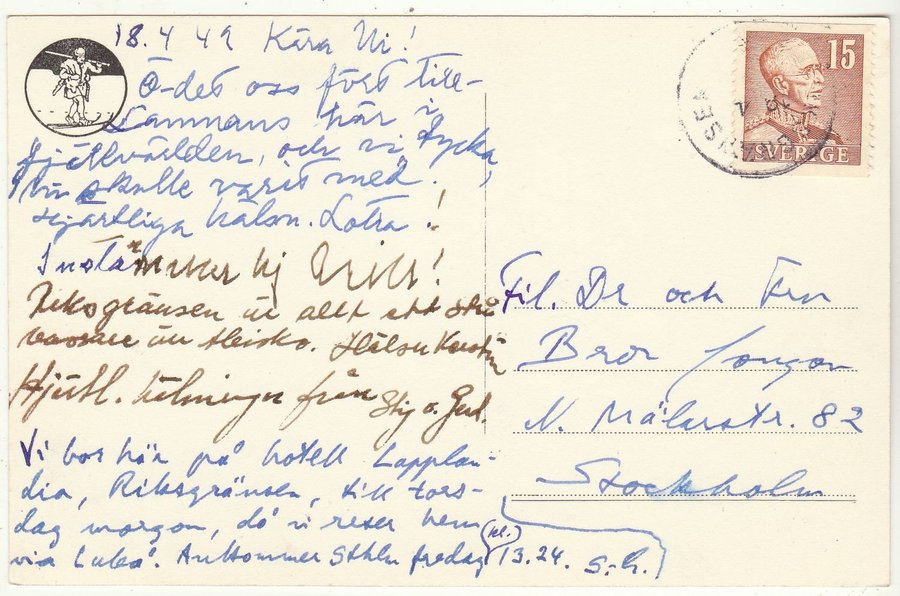 18.4 49 Kära Ni!
Ö-det oss fört till-
sammans här i
fjällvärlden, och vi tycka,
Ni skulle varit med.
hjärtliga hälsn. Lotta!
Instämmer hj
Riksgränsen är allt ett strå
vassare än Abisko. Hälsn Kerstin
Hjärtl. hälsningar från Stig o.
Vi bor här på hotell Lapplan-
dia, Riksgränsen, till tors-
dag morgon, då vi reser hem
via Luleå. Ankommer Sthlm fredag (kl.) 13.24. s.h.
15
SVERIGE
Fil. Dr och Fru
Bror
N. Mälarstr. 82
Stockholm